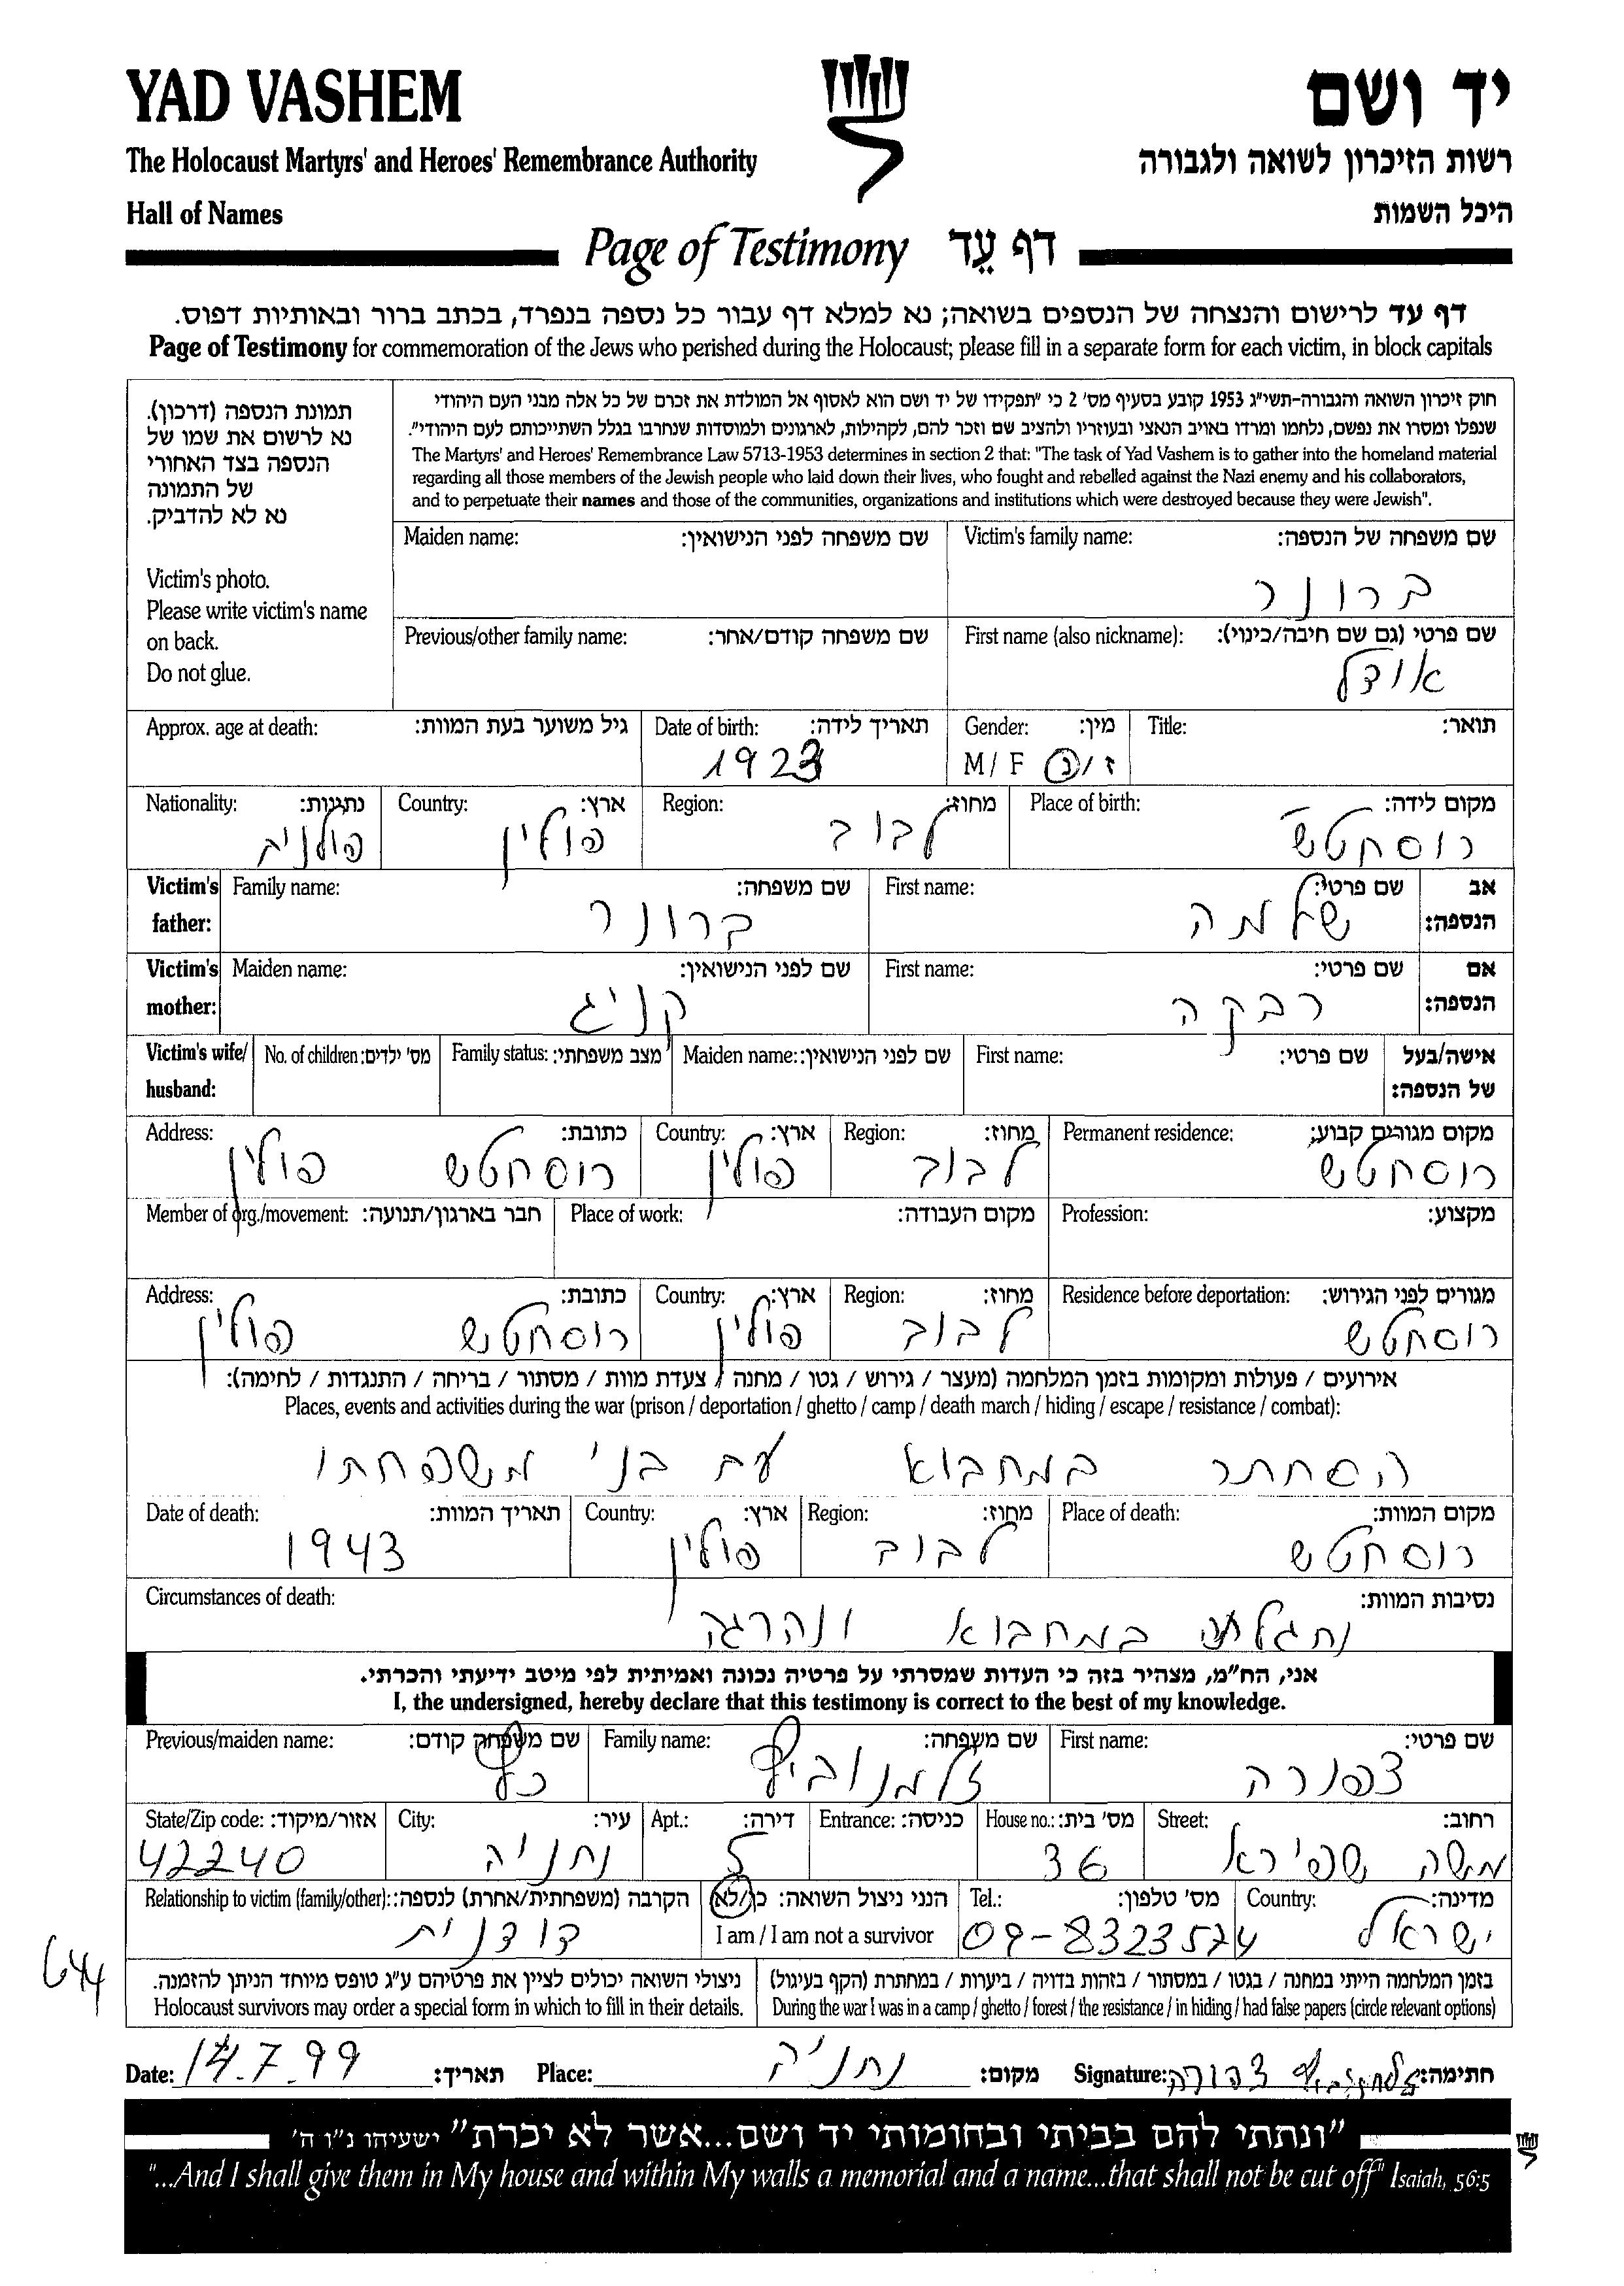 YAD VASHEM
יד ושם
The Holocaust Martyrs' and Heroes' Remembrance Authority
רשות הזיכרון לשואה ולגבורה
Hall of Names
היכל השמות
Page of Testimony דף עֵד
דף עד לרישום והנצחה של הנספים בשואה; נא למלא דף עבור כל נספה בנפרד, בכתב ברור ובאותיות דפוס.
Page of Testimony for commemoration of the Jews who perished during the Holocaust; please fill in a separate form for each victim, in block capitals
תמונת הנספה (דרכון).
נא לרשום את שמו של
הנספה בצד האחורי
של התמונה
נא לא להדביק.
Victim's photo.
Please write victim's name
on back.
Do not glue.
חוק זיכרון השואה והגבורה-תשי"ג 1953 קובע בסעיף מס' 2 כי "תפקידו של יד ושם הוא לאסוף אל המולדת את זכרם של כל אלה מבני העם היהודי
שנפלו ומסרו את נפשם, נלחמו ומרדו באויב הנאצי ובעוזריו ולהציב שם וזכר להם, לקהילות, לארגונים ולמוסדות שנחרבו בגלל השתייכותם לעם היהודי".
The Martyrs' and Heroes' Remembrance Law 5713-1953 determines in section 2 that: "The task of Yad Vashem is to gather into the homeland material
regarding all those members of the Jewish people who laid down their lives, who fought and rebelled against the Nazi enemy and his collaborators,
and to perpetuate their names and those of the communities, organizations and institutions which were destroyed because they were Jewish".
שם משפחה של הנספה: Victim's family name: שם משפחה לפני הנישואין: Maiden name:
ברונר
שם פרטי (גם שם חיבה/כינוי): First name (also nickname): שם משפחה קודם/אחר: Previous/other family name:
אודל
תואר: Title: מין: Gender: תאריך לידה: Date of birth: גיל משוער בעת המוות: Approx. age at death:
ז/נ M/F 1923
מקום לידה: Place of birth: מחוז: Region: ארץ: Country: נתינות: Nationality:
רוסחטש לבוב פולין פולנית
אב הנספה: שם פרטי: First name: שם משפחה: Family name: Victim's father:
שלמה ברונר
אם הנספה: שם פרטי: First name: שם לפני הנישואין: Maiden name: Victim's mother:
רבקה קניג
אישה/בעל של הנספה: שם פרטי: First name: שם לפני הנישואין: Maiden name: מצב משפחתי: Family status: מס' ילדים: No. of children: Victim's wife/ husband:
מקום מגורים קבוע: Permanent residence: מחוז: Region: ארץ: Country: כתובת: Address:
רוסחטש לבוב פולין רוסחטש פולין
מקצוע: Profession: מקום העבודה: Place of work: חבר בארגון/תנועה: Member of org./movement:
מגורים לפני הגירוש: Residence before deportation: מחוז: Region: ארץ: Country: כתובת: Address:
רוסחטש לבוב פולין רוסחטש פולין
אירועים / פעולות ומקומות בזמן המלחמה (מעצר / גירוש / גטו / מחנה / צעדת מוות / מסתור / בריחה / התנגדות / לחימה):
Places, events and activities during the war (prison / deportation / ghetto / camp / death march / hiding / escape / resistance / combat):
הסתתר במחבוא עם בני משפחתו
מקום המוות: Place of death: מחוז: Region: ארץ: Country: תאריך המוות: Date of death:
רוסחטש לבוב פולין 1943
נסיבות המוות: Circumstances of death:
נתגלתה במחבוא ונהרגה
אני, הח"מ, מצהיר בזה כי העדות שמסרתי על פרטיה נכונה ואמיתית לפי מיטב ידיעתי והכרתי.
I, the undersigned, hereby declare that this testimony is correct to the best of my knowledge.
שם פרטי: First name: שם משפחה: Family name: שם משפחה קודם: Previous/maiden name:
צפורה זלמנוביץ כץ
רחוב: Street: מס' בית: House no.: כניסה: Entrance: דירה: Apt.: עיר: City: אזור/מיקוד: State/Zip code:
משה שפירא 36 5 נתניה 42240
מדינה: Country: מס' טלפון: Tel.: הנני ניצול השואה: כן/לא הקרבה (משפחתית/אחרת) לנספה: Relationship to victim (family/other):
I am / I am not a survivor
ישראל 09-8323574 דודנית
644
בזמן המלחמה הייתי במחנה / בגטו / במסתור / בזהות בדויה / ביערות / במחתרת (הקף בעיגול)
During the war I was in a camp / ghetto / forest / the resistance / in hiding / had false papers (circle relevant options)
ניצולי השואה יכולים לציין את פרטיהם ע"ג טופס מיוחד הניתן להזמנה.
Holocaust survivors may order a special form in which to fill in their details.
חתימה: זלמנוביץ צפורה Signature: מקום: נתניה Place: תאריך: 14.7.99 Date:
"ונתתי להם בביתי ובחומותי יד ושם...אשר לא יכרת" ישעיהו נ"ו ה'
"...And I shall give them in My house and within My walls a memorial and a name...that shall not be cut off" Isaiah, 56:5